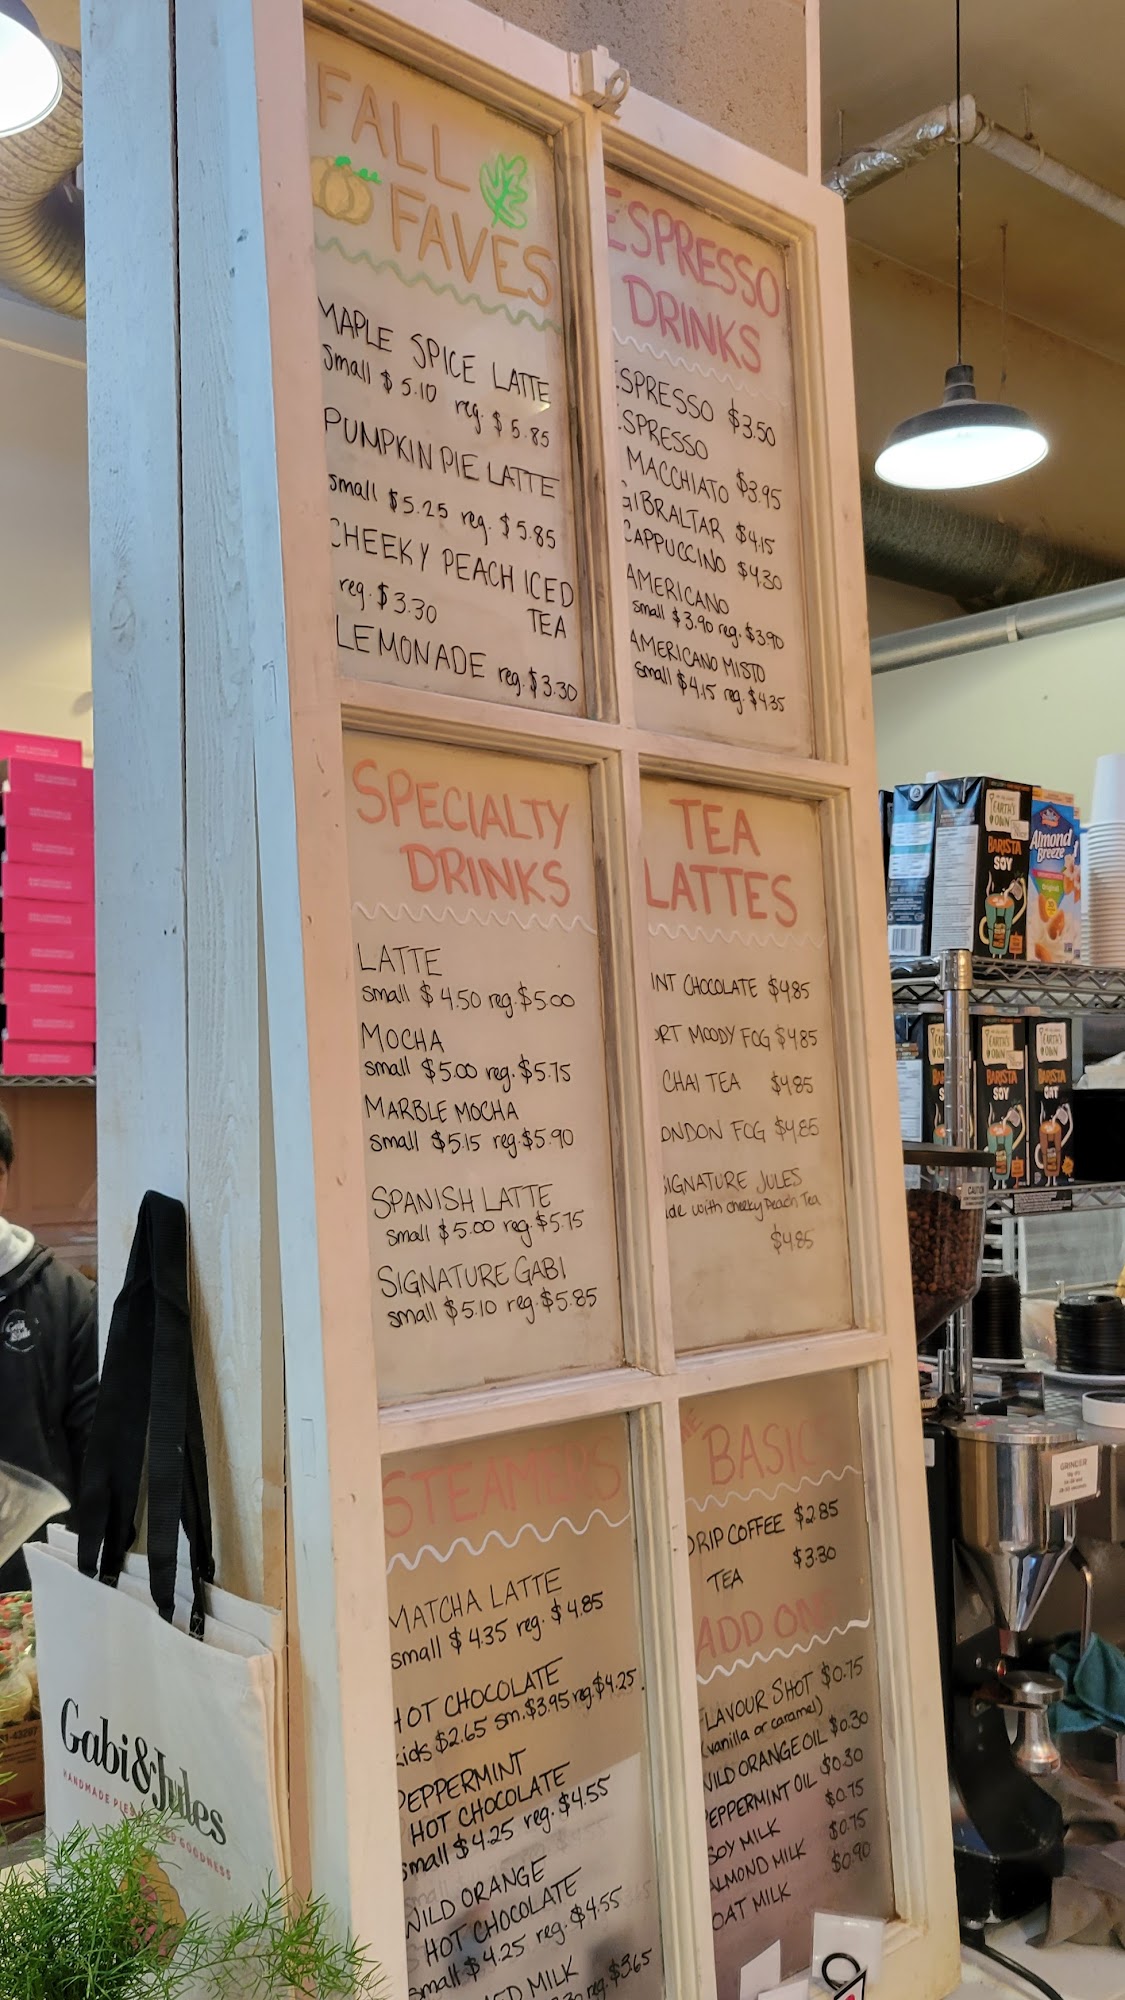 FALL
FAVES
MAPLE SPICE LATTE
small $5.10 reg. $5.85
PUMPKIN PIE LATTE
small $5.25 reg. $5.85
CHEEKY PEACH ICED
TEA
reg. $3.30
LEMONADE reg. $3.30
ESPRESSO
DRINKS
ESPRESSO $3.50
ESPRESSO
MACCHIATO $3.95
GIBRALTAR $4.15
CAPPUCCINO $4.30
AMERICANO
small $3.90 reg. $3.90
AMERICANO MISTO
small $4.15 reg. $4.35
SPECIALTY
DRINKS
LATTE
small $4.50 reg. $5.00
MOCHA
small $5.00 reg. $5.75
MARBLE MOCHA
small $5.15 reg. $5.90
SPANISH LATTE
small $5.00 reg. $5.75
SIGNATURE GABI
small $5.10 reg. $5.85
TEA
LATTES
INT CHOCOLATE $4.85
ORT MOODY FOG $4.85
CHAI TEA $4.85
ONDON FOG $4.85
SIGNATURE JULES
de with cheeky Peach Tea
$4.85
STEAMERS
MATCHA LATTE
small $4.35 reg. $4.85
HOT CHOCOLATE
kids $2.65 sm. $3.95 reg. $4.25
PEPPERMINT
HOT CHOCOLATE
small $4.25 reg. $4.55
WILD ORANGE
HOT CHOCOLATE
small $4.25 reg. $4.55
ED MILK
reg. $3.65
BASIC
DRIP COFFEE $2.85
TEA $3.30
ADD ON
FLAVOUR SHOT $0.75
(vanilla or caramel)
WILD ORANGE OIL $0.30
PEPPERMINT OIL $0.30
SOY MILK $0.75
ALMOND MILK $0.75
OAT MILK $0.90
Gabi&Jules
HANDMADE PIE
GOODNESS
EARTH'S
OWN
BARISTA
SOY
Almond
Breeze
EARTH'S
OWN
BARISTA
SOY
EARTH'S
OWN
BARISTA
OAT
GRINDER